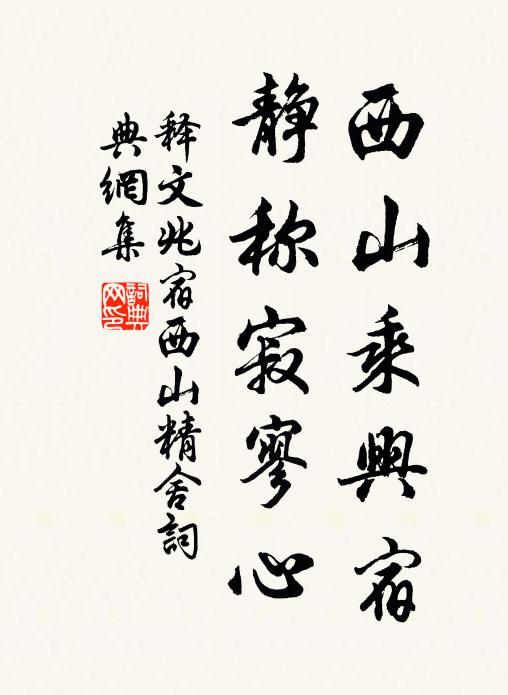 西山乘興宿
静称寂寥心
释文兆宿西山精舍詞
典網集
詞典网印